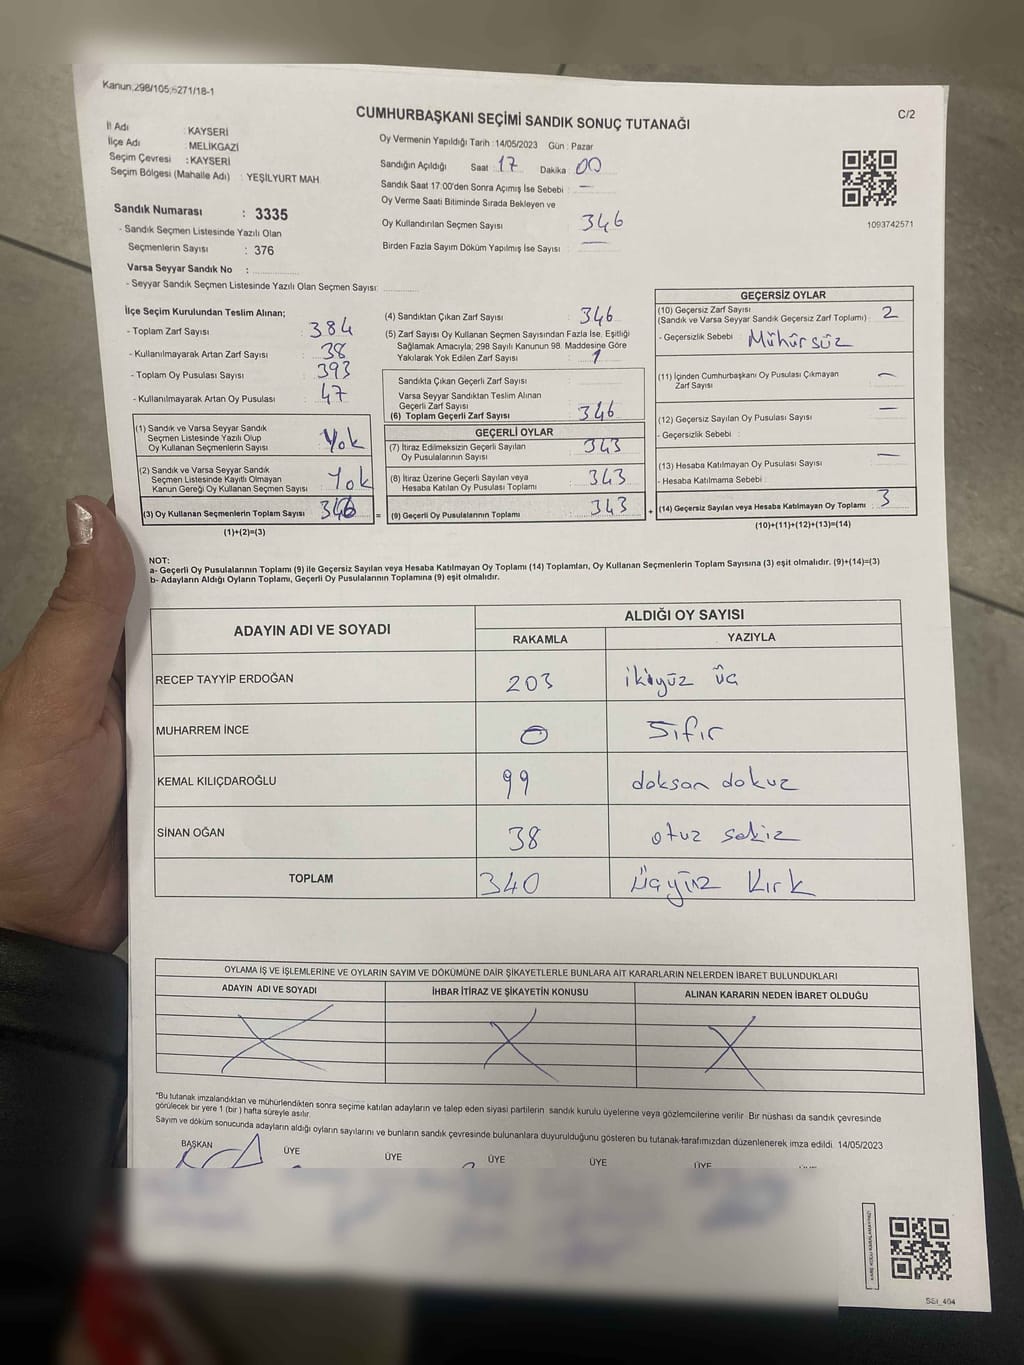 Kanun;298/105;6271/18-1
C/2
CUMHURBAŞKANI SEÇİMİ SANDIK SONUÇ TUTANAĞI
İl Adı : KAYSERİ
İlçe Adı : MELİKGAZİ
Seçim Çevresi : KAYSERİ
Seçim Bölgesi (Mahalle Adı) : YEŞİLYURT MAH
Sandık Numarası : 3335
- Sandık Seçmen Listesinde Yazılı Olan
Seçmenlerin Sayısı : 376
Varsa Seyyar Sandık No :
- Seyyar Sandık Seçmen Listesinde Yazılı Olan Seçmen Sayısı:
Oy Vermenin Yapıldığı Tarih : 14/05/2023 Gün : Pazar
Sandığın Açıldığı Saat : 17 Dakika : 00
Sandık Saat 17:00'den Sonra Açımış İse Sebebi : —
Oy Verme Saati Bitiminde Sırada Bekleyen ve
Oy Kullandırılan Seçmen Sayısı : 346
Birden Fazla Sayım Döküm Yapılmış İse Sayısı : —
1093742571
İlçe Seçim Kurulundan Teslim Alınan;
- Toplam Zarf Sayısı : 384
- Kullanılmayarak Artan Zarf Sayısı : 38
- Toplam Oy Pusulası Sayısı : 393
- Kullanılmayarak Artan Oy Pusulası : 47
(1) Sandık ve Varsa Seyyar Sandık
Seçmen Listesinde Yazılı Olup
Oy Kullanan Seçmenlerin Sayısı : Yok
(2) Sandık ve Varsa Seyyar Sandık
Seçmen Listesinde Kayıtlı Olmayan
Kanun Gereği Oy Kullanan Seçmen Sayısı : Yok
(3) Oy Kullanan Seçmenlerin Toplam Sayısı : 346
(1)+(2)=(3)
(4) Sandıktan Çıkan Zarf Sayısı : 346
(5) Zarf Sayısı Oy Kullanan Seçmen Sayısından Fazla İse, Eşitliği
Sağlamak Amacıyla; 298 Sayılı Kanunun 98. Maddesine Göre
Yakılarak Yok Edilen Zarf Sayısı :
Sandıkta Çıkan Geçerli Zarf Sayısı :
Varsa Seyyar Sandıktan Teslim Alınan
Geçerli Zarf Sayısı :
(6) Toplam Geçerli Zarf Sayısı : 346
GEÇERLİ OYLAR
(7) İtiraz Edilmeksizin Geçerli Sayılan
Oy Pusulalarının Sayısı : 343
(8) İtiraz Üzerine Geçerli Sayılan veya
Hesaba Katılan Oy Pusulası Toplamı : 343
= (9) Geçerli Oy Pusulalarının Toplamı : 343
GEÇERSİZ OYLAR
(10) Geçersiz Zarf Sayısı
(Sandık ve Varsa Seyyar Sandık Geçersiz Zarf Toplamı) : 2
- Geçersizlik Sebebi : Mühürsüz
(11) İçinden Cumhurbaşkanı Oy Pusulası Çıkmayan
Zarf Sayısı : —
(12) Geçersiz Sayılan Oy Pusulası Sayısı : —
- Geçersizlik Sebebi :
(13) Hesaba Katılmayan Oy Pusulası Sayısı : —
- Hesaba Katılmama Sebebi :
+ (14) Geçersiz Sayılan veya Hesaba Katılmayan Oy Toplamı : 3
(10)+(11)+(12)+(13)=(14)
NOT:
a- Geçerli Oy Pusulalarının Toplamı (9) ile Geçersiz Sayılan veya Hesaba Katılmayan Oy Toplamı (14) Toplamları, Oy Kullanan Seçmenlerin Toplam Sayısına (3) eşit olmalıdır. (9)+(14)=(3)
b- Adayların Aldığı Oyların Toplamı, Geçerli Oy Pusulalarının Toplamına (9) eşit olmalıdır.
ADAYIN ADI VE SOYADI
ALDIĞI OY SAYISI
RAKAMLA YAZIYLA
RECEP TAYYİP ERDOĞAN 203 ikiyüz üç
MUHARREM İNCE 0 Sıfır
KEMAL KILIÇDAROĞLU 99 doksan dokuz
SİNAN OĞAN 38 otuz sekiz
TOPLAM 340 Üçyüz Kırk
OYLAMA İŞ VE İŞLEMLERİNE VE OYLARIN SAYIM VE DÖKÜMÜNE DAİR ŞİKAYETLERLE BUNLARA AİT KARARLARIN NELERDEN İBARET BULUNDUKLARI
ADAYIN ADI VE SOYADI İHBAR İTİRAZ VE ŞİKAYETİN KONUSU ALINAN KARARIN NEDEN İBARET OLDUĞU
*Bu tutanak imzalandıktan ve mühürlendikten sonra seçime katılan adayların ve talep eden siyasi partilerin sandık kurulu üyelerine veya gözlemcilerine verilir. Bir nüshası da sandık çevresinde
görülecek bir yere 1 (bir ) hafta süreyle asılır.
Sayım ve döküm sonucunda adayların aldığı oyların sayılarını ve bunların sandık çevresinde bulunanlara duyurulduğunu gösteren bu tutanak tarafımızdan düzenlenerek imza edildi. 14/05/2023
BAŞKAN ÜYE ÜYE ÜYE ÜYE ÜYE